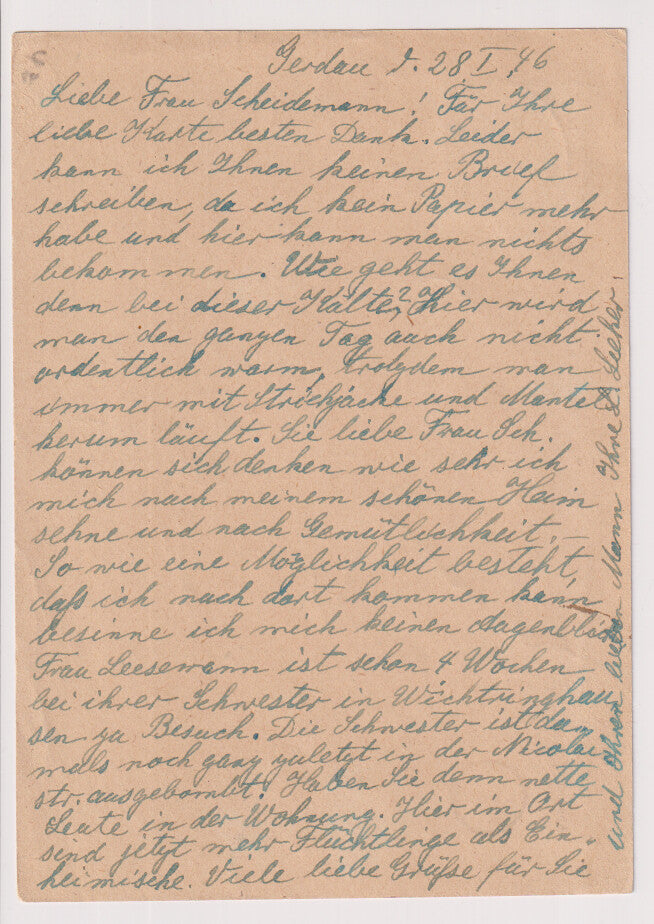 Gerdau d. 28 I. 46
Liebe Frau Scheidemann! Für Ihre
liebe Karte besten Dank. Leider
kann ich Ihnen keinen Brief
schreiben, da ich kein Papier mehr
habe und hier kann man nichts
bekommen. Wie geht es Ihnen
denn bei dieser Kälte? Hier wird
man den ganzen Tag auch nicht
ordentlich warm, trotzdem man
immer mit Strickjacke und Mantel
herum läuft. Sie liebe Frau Sch.
können sich denken wie sehr ich
mich nach meinem schönen Heim
sehne und nach Gemütlichkeit. –
So wie eine Möglichkeit besteht,
daß ich nach dort kommen kann
besinne ich mich keinen Augenblick.
Frau Leesemann ist schon 4 Wochen
bei ihrer Schwester in Wichtringhau
sen zu Besuch. Die Schwester ist da
mals noch ganz zuletzt in der Nicolai
str. ausgebombt. Haben Sie denn nette
Leute in der Wohnung. Hier im Ort
sind jetzt mehr Flüchtlinge als Ein-
heimische. Viele liebe Grüße für Sie
und Ihren lieben Mann Ihre